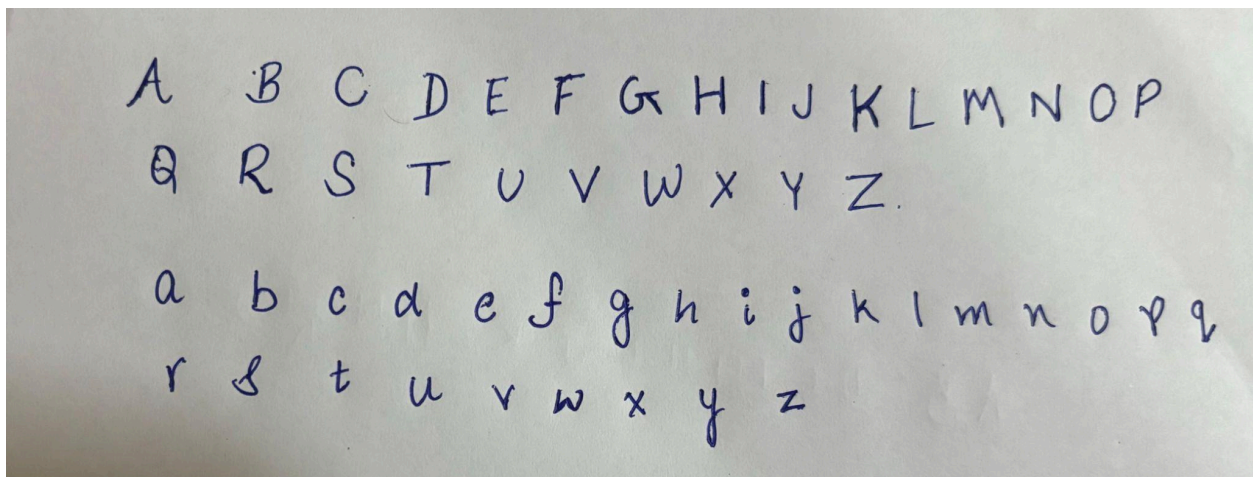 A B C D E F G H I J K L M N O P
Q R S T U V W X Y Z.
a b c d e f g h i j k l m n o p q
r s t u v w x y z